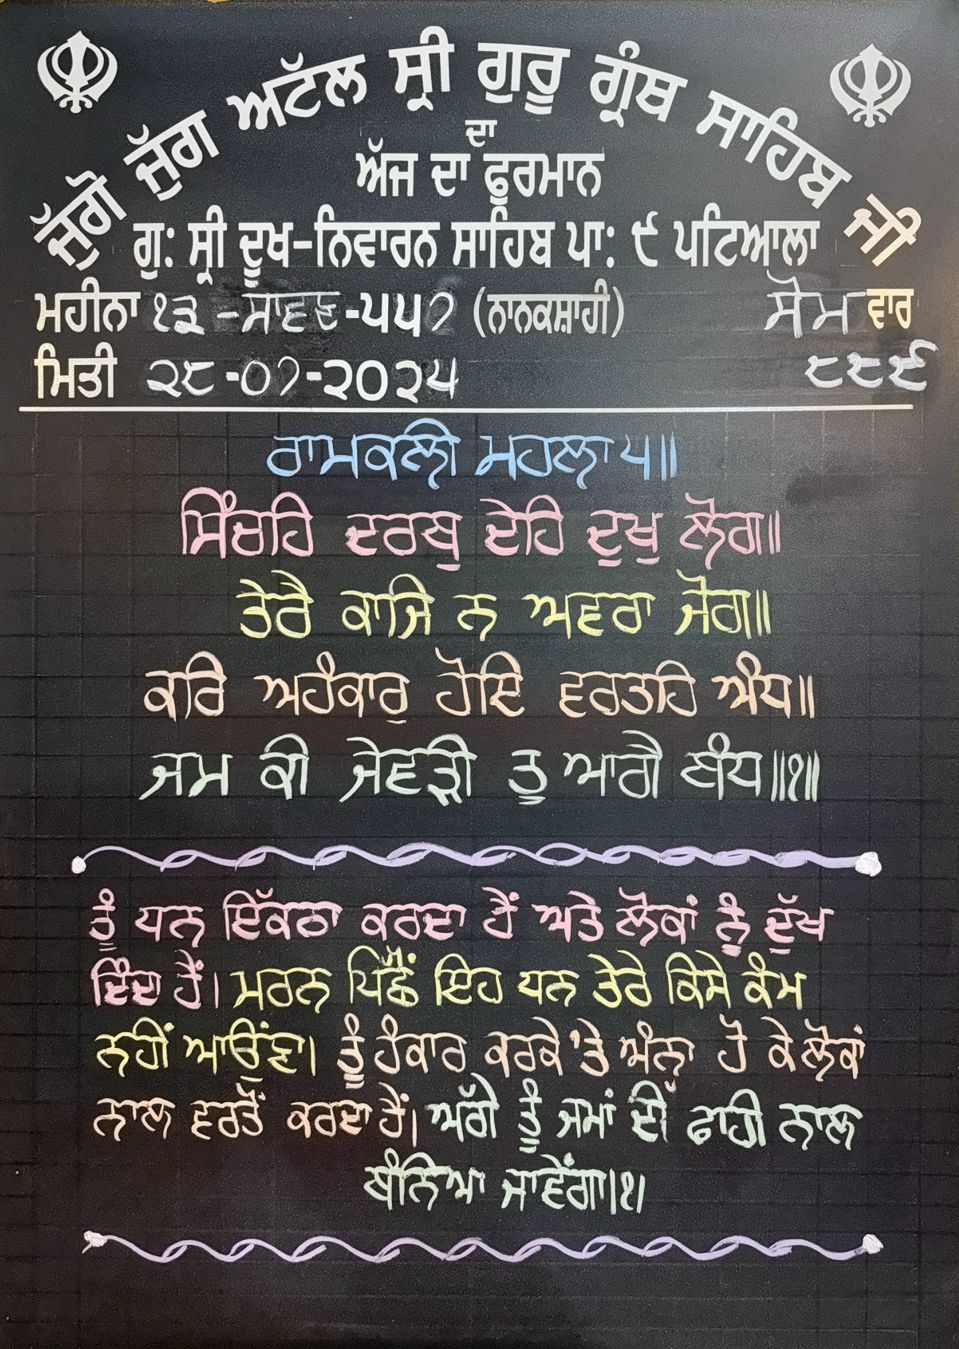 ਜੁੱਗੋ ਜੁੱਗ ਅਟੱਲ ਸ੍ਰੀ ਗੁਰੂ ਗ੍ਰੰਥ ਸਾਹਿਬ ਜੀ
ਦਾ
ਅੱਜ ਦਾ ਫੁਰਮਾਨ
ਗੁ: ਸ੍ਰੀ ਦੂਖ-ਨਿਵਾਰਨ ਸਾਹਿਬ ਪਾ: ੯ ਪਟਿਆਲਾ
ਮਹੀਨਾ ੧੩ -ਸਾਵਣ-੫੫੭ (ਨਾਨਕਸ਼ਾਹੀ) ਸੋਮ ਵਾਰ
ਮਿਤੀ ੨੮-੦੭-੨੦੨੫ ੮੮੯
ਰਾਮਕਲੀ ਮਹਲਾ ੫॥
ਸਿੰਚਹਿ ਦਰਬੁ ਦੇਹਿ ਦੁਖੁ ਲੋਗ॥
ਤੇਰੈ ਕਾਜਿ ਨ ਅਵਰਾ ਜੋਗ॥
ਕਰਿ ਅਹੰਕਾਰੁ ਹੋਇ ਵਰਤਹਿ ਅੰਧ॥
ਜਮ ਕੀ ਜੇਵੜੀ ਤੂ ਆਗੈ ਬੰਧ॥੧॥
ਤੂੰ ਧਨ ਇੱਕਠਾ ਕਰਦਾ ਹੈਂ ਅਤੇ ਲੋਕਾਂ ਨੂੰ ਦੁੱਖ
ਦਿੰਦਾ ਹੈਂ। ਮਰਨ ਪਿੱਛੋਂ ਇਹ ਧਨ ਤੇਰੇ ਕਿਸੇ ਕੰਮ
ਨਹੀਂ ਆਉਂਣਾ। ਤੂੰ ਹੰਕਾਰ ਕਰਕੇ 'ਤੇ ਅੰਨਾ ਹੋ ਕੇ ਲੋਕਾਂ
ਨਾਲ ਵਰਤੋਂ ਕਰਦਾ ਹੈਂ। ਅੱਗੇ ਤੂੰ ਜਮਾਂ ਦੀ ਫਾਹੀ ਨਾਲ
ਬੰਨਿਆ ਜਾਵੇਂਗਾ।੧।